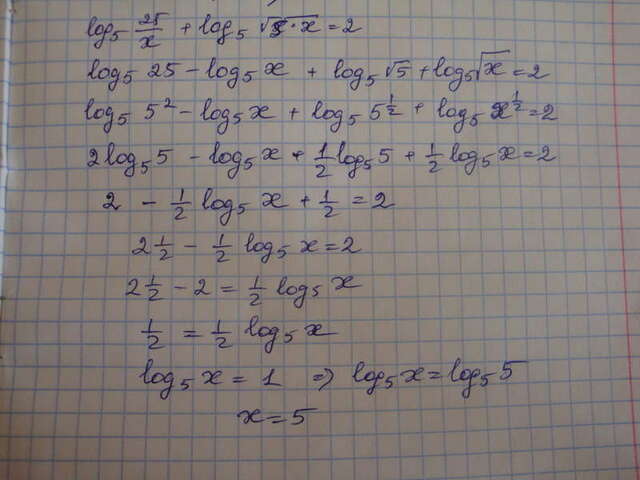 log₅ 25/x + log₅ √5·x = 2
log₅ 25 − log₅ x + log₅ √5 + log₅ √x = 2
log₅ 5² − log₅ x + log₅ 5^½ + log₅ x^½ = 2
2 log₅ 5 − log₅ x + ½ log₅ 5 + ½ log₅ x = 2
2 − ½ log₅ x + ½ = 2
2½ − ½ log₅ x = 2
2½ − 2 = ½ log₅ x
½ = ½ log₅ x
log₅ x = 1 ⇒ log₅ x = log₅ 5
x = 5